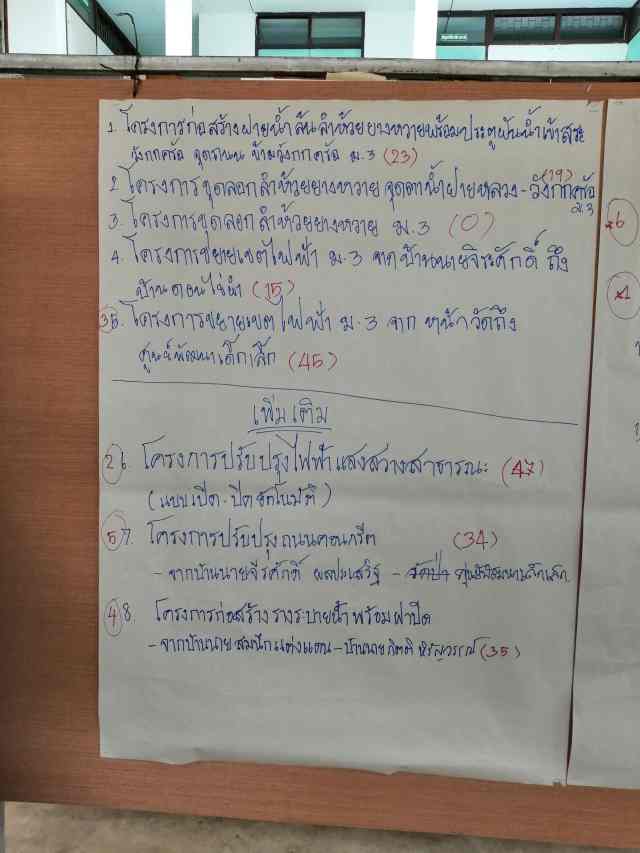 1. โครงการก่อสร้างฝายน้ำล้นลำห้วยยางหวายพร้อมประตูผันน้ำเข้าสระ
วังกกคร้อ จุดถนน ข้ามวังกกคร้อ ม.3 (23)
2. โครงการขุดลอกลำห้วยยางหวาย จุดตาน้ำฝายหลวง - วังกกคร้อ (19)
ม.3
3. โครงการขุดลอกลำห้วยยางหวาย ม.3 (0)
4. โครงการขยายเขตไฟฟ้า ม.3 จากบ้านนายจิระศักดิ์ ถึง
บ้านดอนไข่เผ่า (15)
3 5. โครงการขยายเขตไฟฟ้า ม.3 จาก หน้าวัดถึง
ศูนย์พัฒนาเด็กเล็ก (45)
เพิ่มเติม
2 6. โครงการปรับปรุงไฟฟ้าแสงสว่างสาธารณะ (47)
(แบบเปิด-ปิดอัตโนมัติ)
5 7. โครงการปรับปรุงถนนคอนกรีต (34)
- จากบ้านนายจีรศักดิ์ ผลประเสริฐ - ศูนย์พัฒนาเด็กเล็ก
4 8. โครงการก่อสร้างรางระบายน้ำพร้อมฝาปิด
- จากบ้านนายสมนึก แต่งแดน - บ้านนายกิตติ หิรัญวรรณ์ (35)